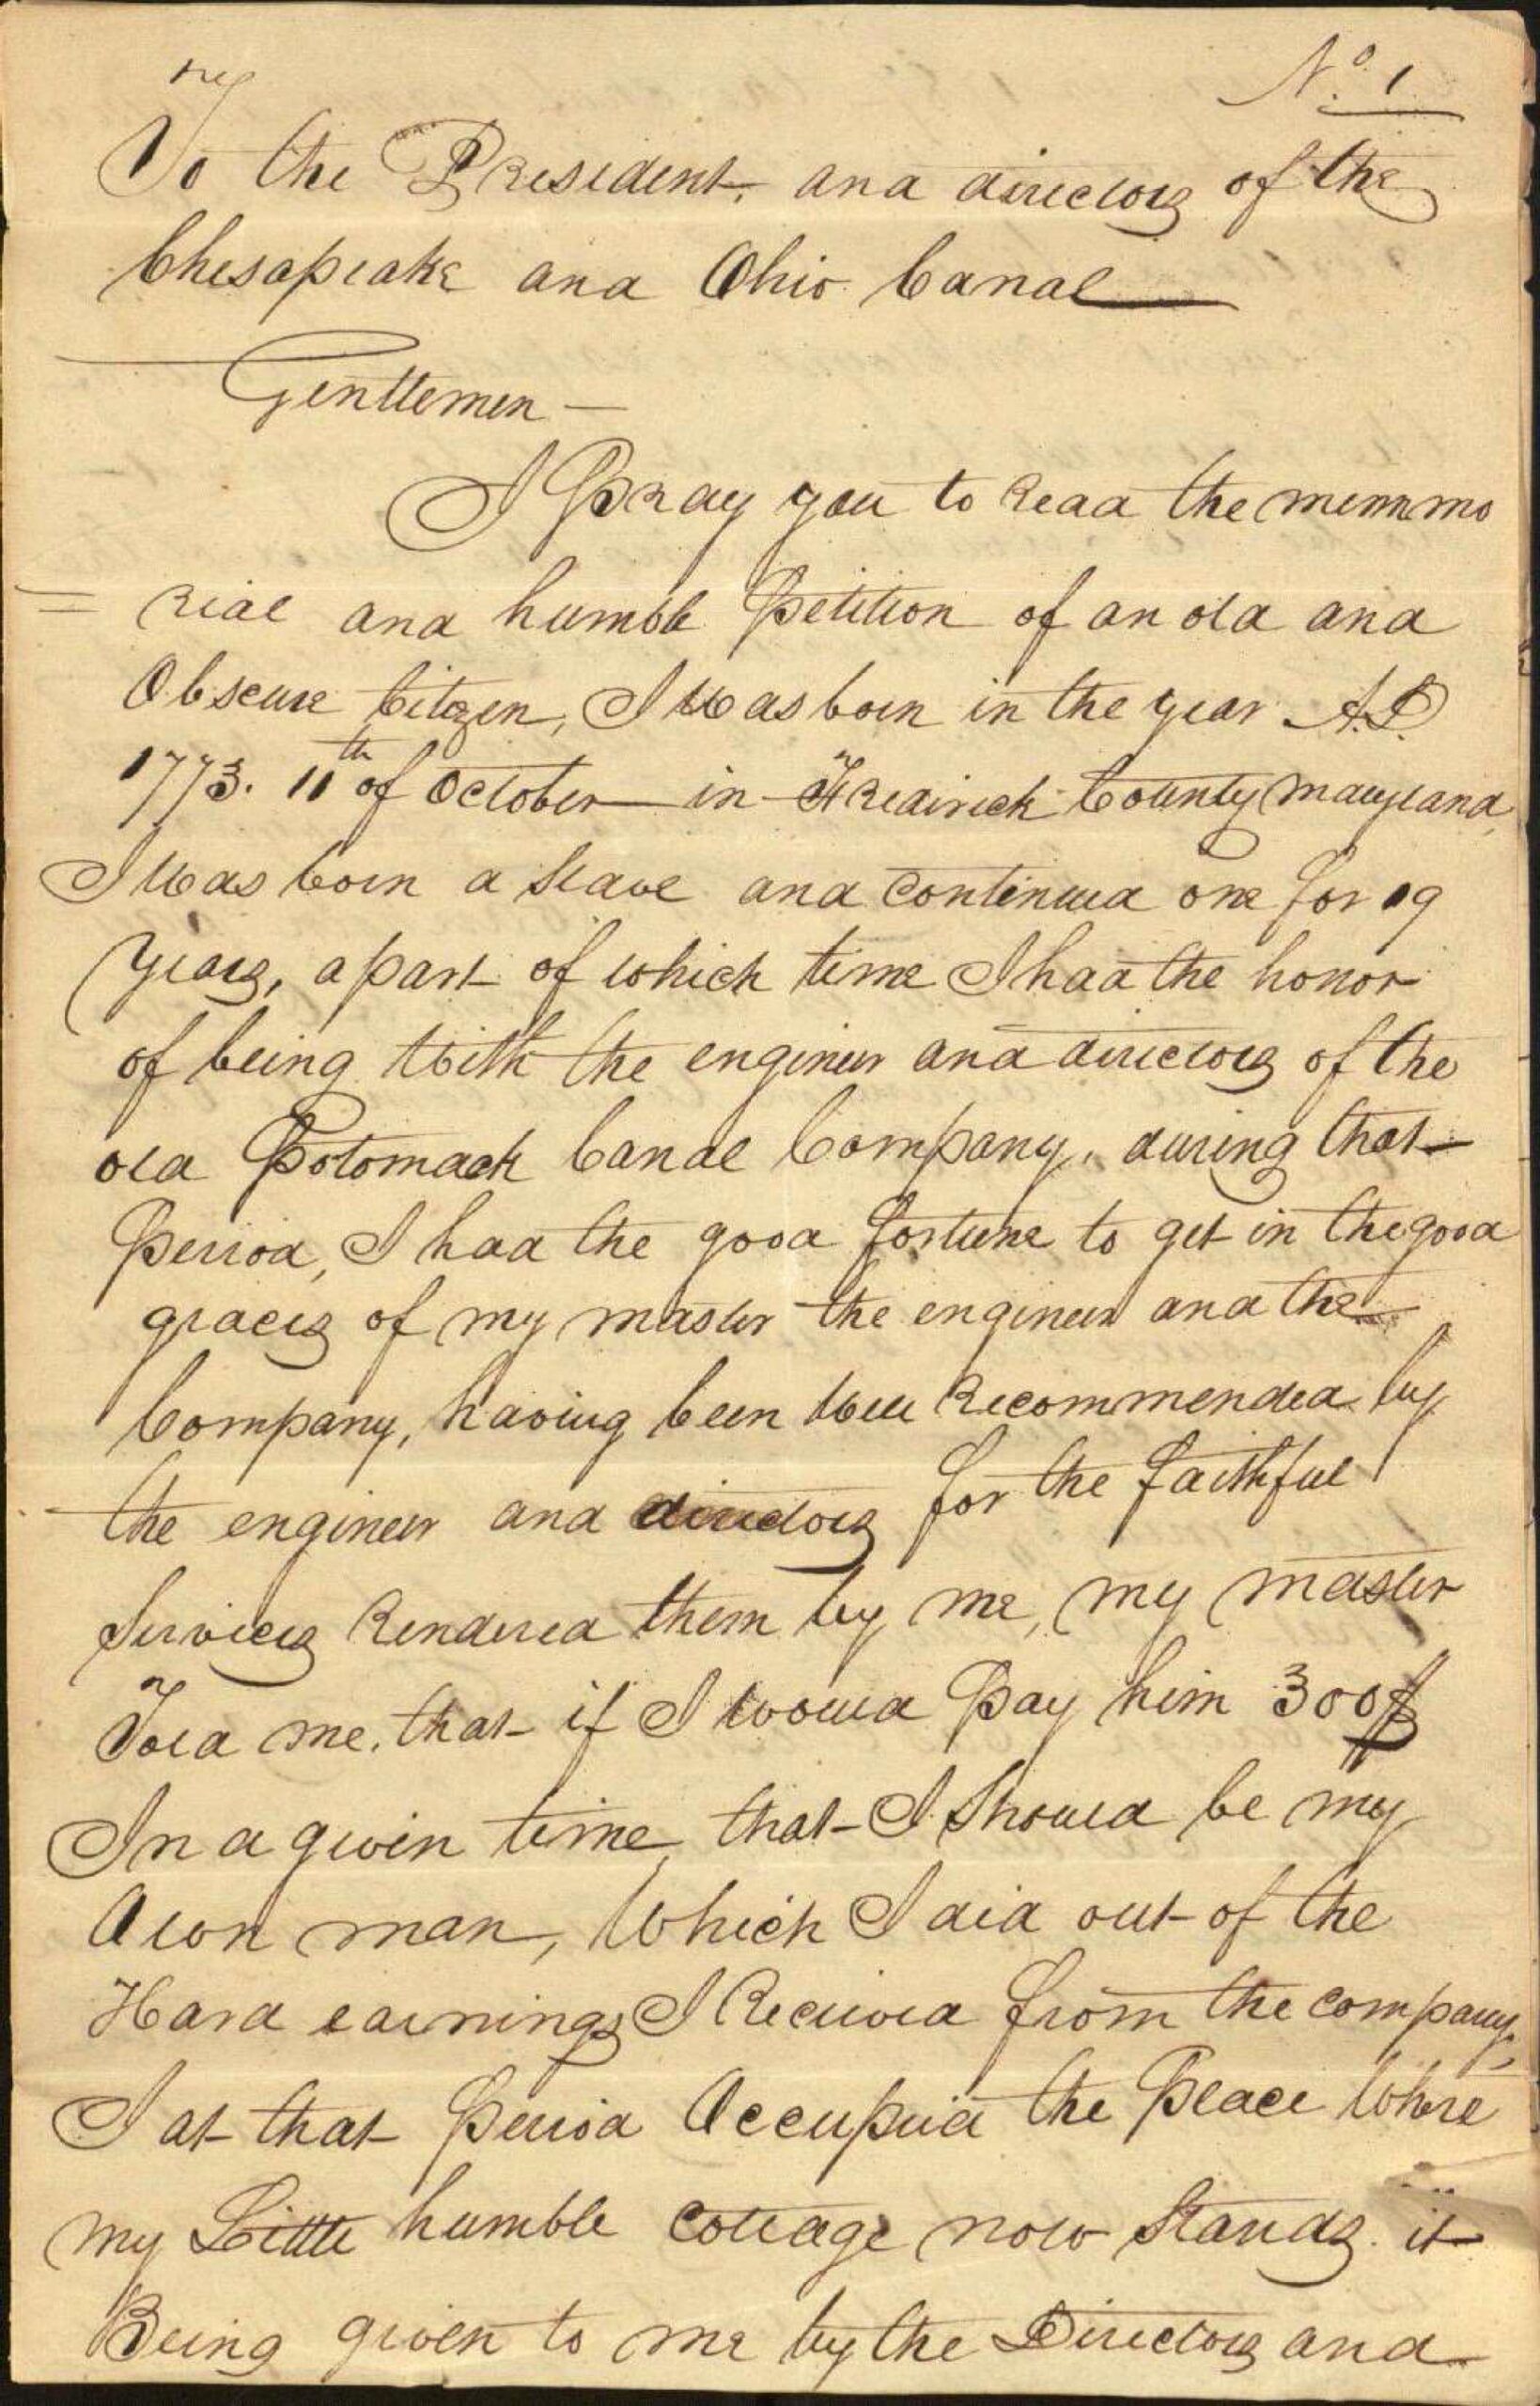 No. 1
To the President, and directors of the
Chesapeake and Ohio Canal
Genttemen —
I Pray you to Read the memmo
= rial and humble Petition of an old and
Obscure Citizen, I Was born in the year A.D.
1773. 11th of October in Fredirick County maryland,
I Was born a slave and Continued one for 19
years, a part of which time I had the honor
of being With the engineer and directors of the
old Potomack Canal Company, during that
Period, I had the good fortune to get in the good
graces of my master the engineer and the
Company, having been Well Recommended by
the engineer and directors for the faithful
Services Rendered them by me, my master
Told me, that if I Would Pay him 300$
In a given time, that I Should be my
Own man, Which I did out of the
Hard earnings I Received from the Company,
I at that Period Occupied the Place Where
my Little humble Cottage now Stands. it
Being given to me by the Directors and